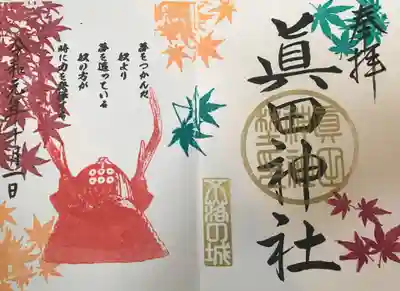 奉拝
眞田神社
不落の城
夢をつかんだ
奴より
夢を追っている
奴の方が
時に力を
令和元年十月一日